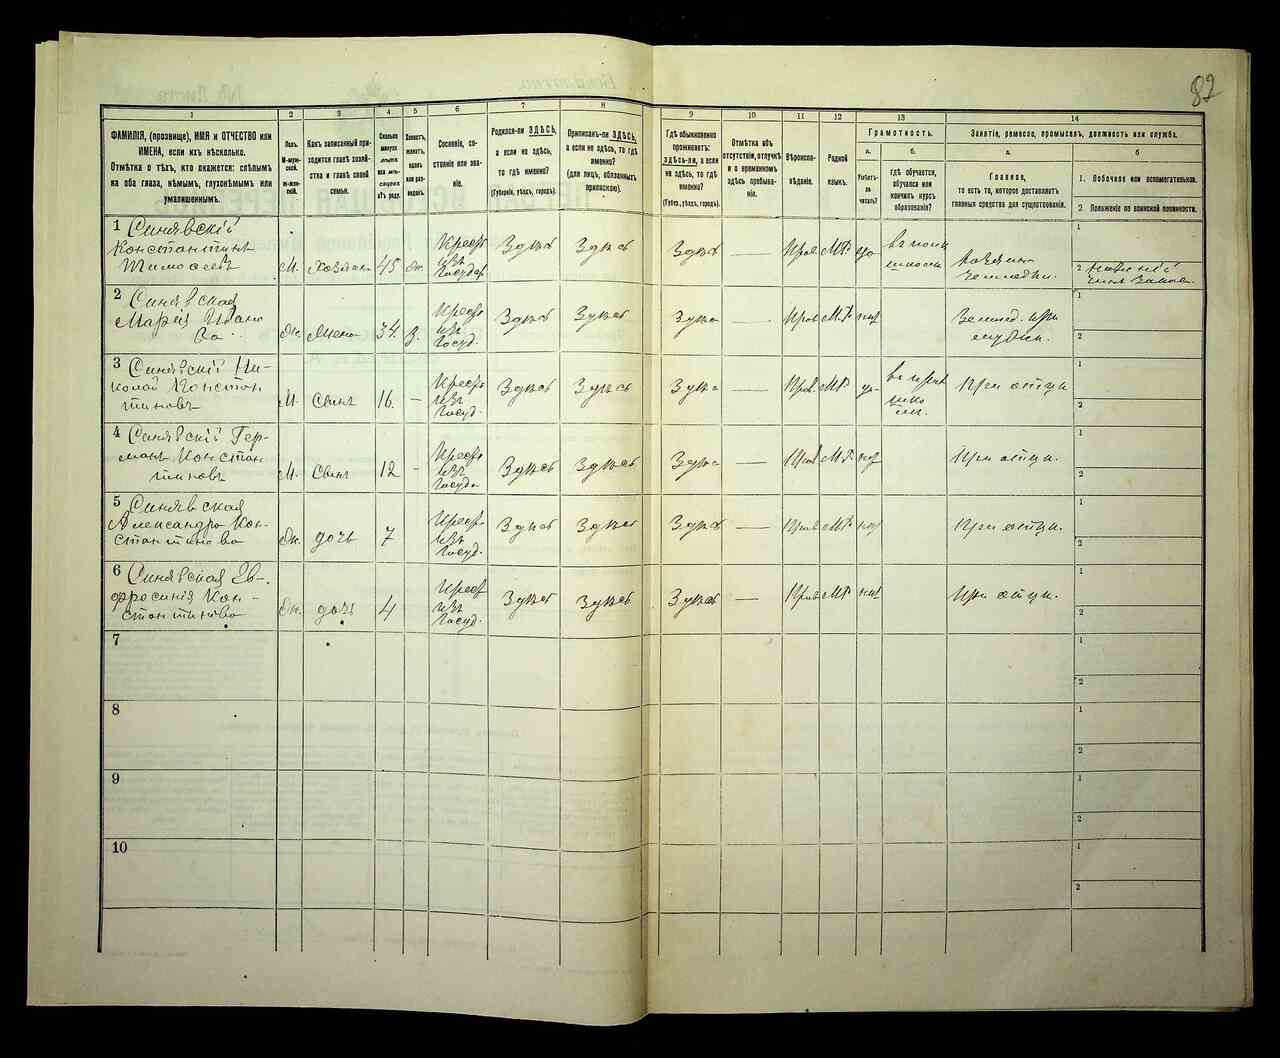 82
1
2
3
4
5
6
7
8
9
10
11
12
13
14
ФАМИЛІЯ, (прозвище), ИМЯ и ОТЧЕСТВО или
ИМЕНА, если ихъ нѣсколько.
Отмѣтка о тѣхъ, кто окажется: слѣпымъ
на оба глаза, нѣмымъ, глухонѣмымъ или
умалишеннымъ.
Полъ.
М-муж-
ской.
Ж-жен-
скій.
Какъ записанный при-
ходится главѣ хозяй-
ства и главѣ своей
семьи.
Сколько
минуло
лѣтъ
или мѣ-
сяцевъ
отъ роду.
Холостъ,
женатъ,
вдовъ
или раз-
веденъ.
Сословіе, со-
стояніе или зва-
ніе.
Родился-ли ЗДѢСЬ,
а если не здѣсь,
то гдѣ именно?
(Губернія, уѣздъ, городъ).
Приписанъ-ли ЗДѢСЬ,
а если не здѣсь, то гдѣ
именно?
(для лицъ, обязанныхъ
припискою).
Гдѣ обыкновенно
проживаетъ:
здѣсь-ли, а если
не здѣсь, то гдѣ
именно?
(Губ., уѣздъ, городъ).
Отмѣтка объ
отсутствіи, отлучкѣ
и о временномъ
здѣсь пребыва-
ніи.
Вѣроиспо-
вѣданіе.
Родной
языкъ.
Грамотность.
а.
Умѣетъ-
ли
читать?
б.
гдѣ обучается,
обучался или
кончилъ курсъ
образованія?
Занятіе, ремесло, промыселъ, должность или служба.
а.
Главное,
то есть то, которое доставляетъ
главныя средства для существованія.
б
1. Побочное или вспомогательное.
2. Положеніе по воинской повинности.
1 Синявскій
Константинъ
Тимофеевъ
М. Хозяинъ 45 Кресть
изъ
Государ
Здѣсь Здѣсь Здѣсь — Прав М.Р. да
школѣ
хозяинъ
1
2
2 Синявская
Марія Ивано
ва
Жн. Жена 34 Кресть
изъ
Госуд.
Здѣсь Здѣсь Здѣсь — Прав М.Р. нѣт
Землед. при
мужѣ.
1
2
3 Синявскій Ни-
колай Констан
тиновъ
М. Сынъ 16. — Кресть
изъ
Госуд.
Здѣсь Здѣсь Здѣсь — Прав. М.Р. да
При отцѣ
1
2
4 Синявскій Гер-
манъ Констан
тиновъ
М. Сынъ 12 — Кресть
изъ
Госуд.
Здѣсь Здѣсь Здѣсь — Прав М.Р. нѣт
При отцѣ.
1
2
5 Синявская
Александра Кон-
стантинова
Жн. дочь 7 Кресть
изъ
Госуд.
Здѣсь Здѣсь Здѣсь — Прав М.Р. нѣт
При отцѣ.
1
2
6 Синявская Ев-
фросинія Кон-
стантинова
Жн. дочь 4 Кресть
изъ
Госуд.
Здѣсь Здѣсь Здѣсь — Прав М.Р. нѣт
При отцѣ.
1
2
7
1
2
8
1
2
9
1
2
10
1
2